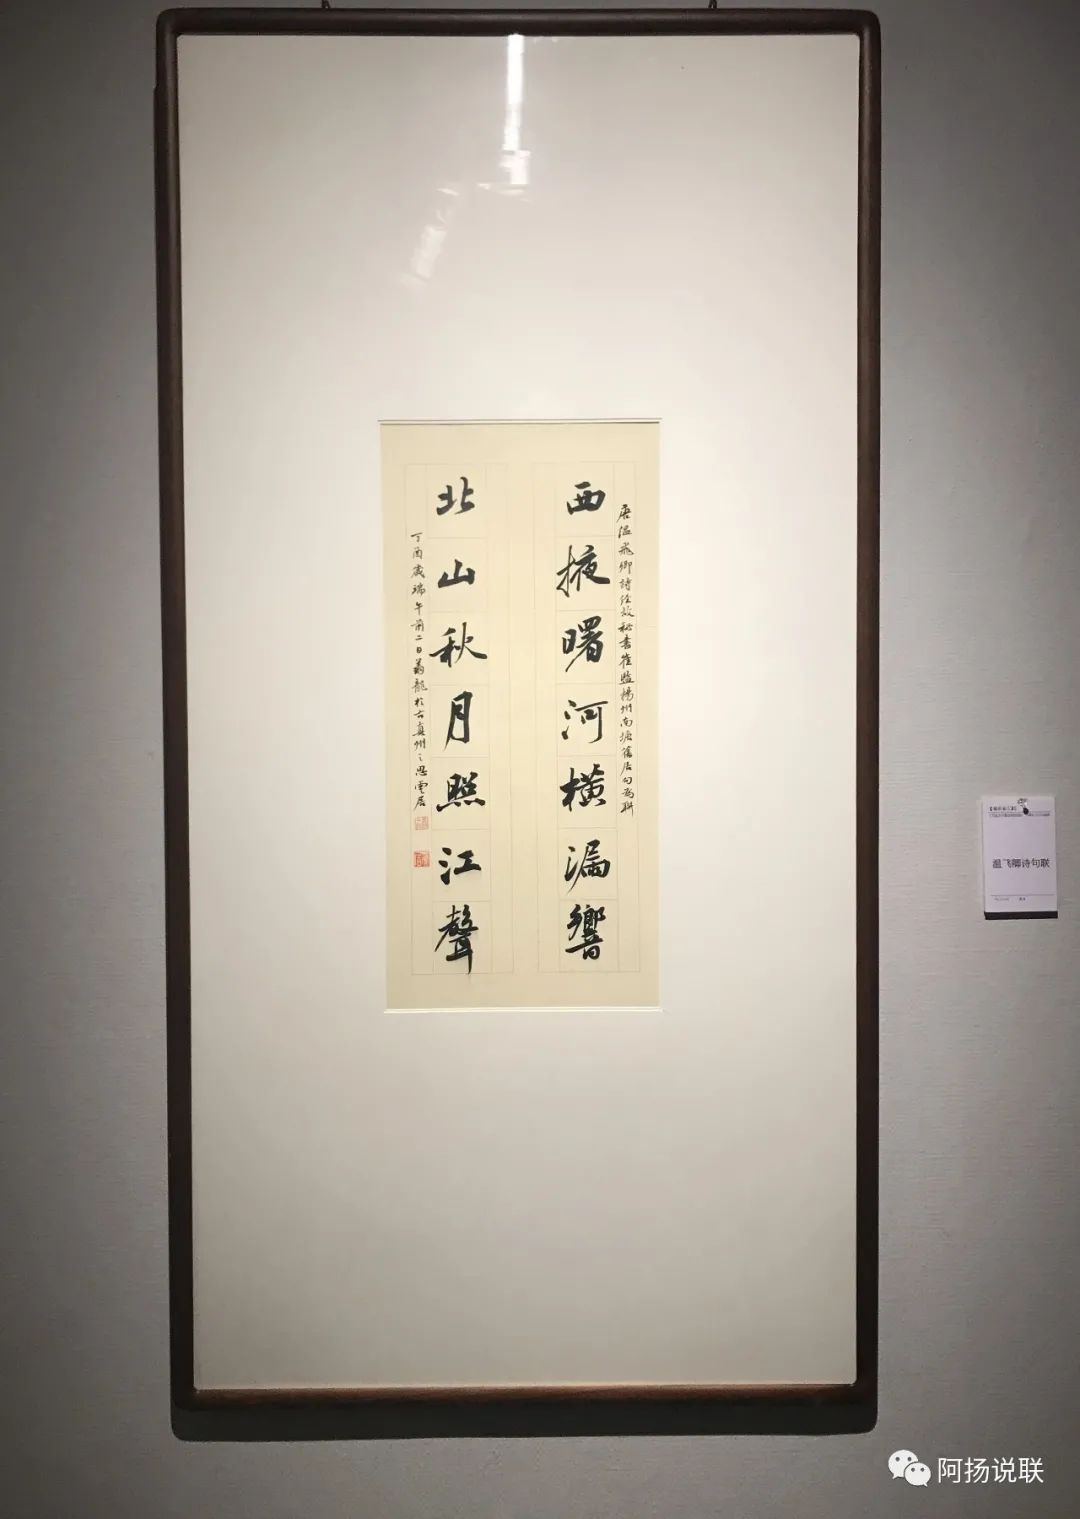 唐温飛卿詩經故秘書崔監揚州南塘舊居句為聯
西掖曙河橫漏響
北山秋月照江聲
丁酉歲端午前二日蒭龍於古真州之思雪居
温飞卿诗句联
阿扬说联